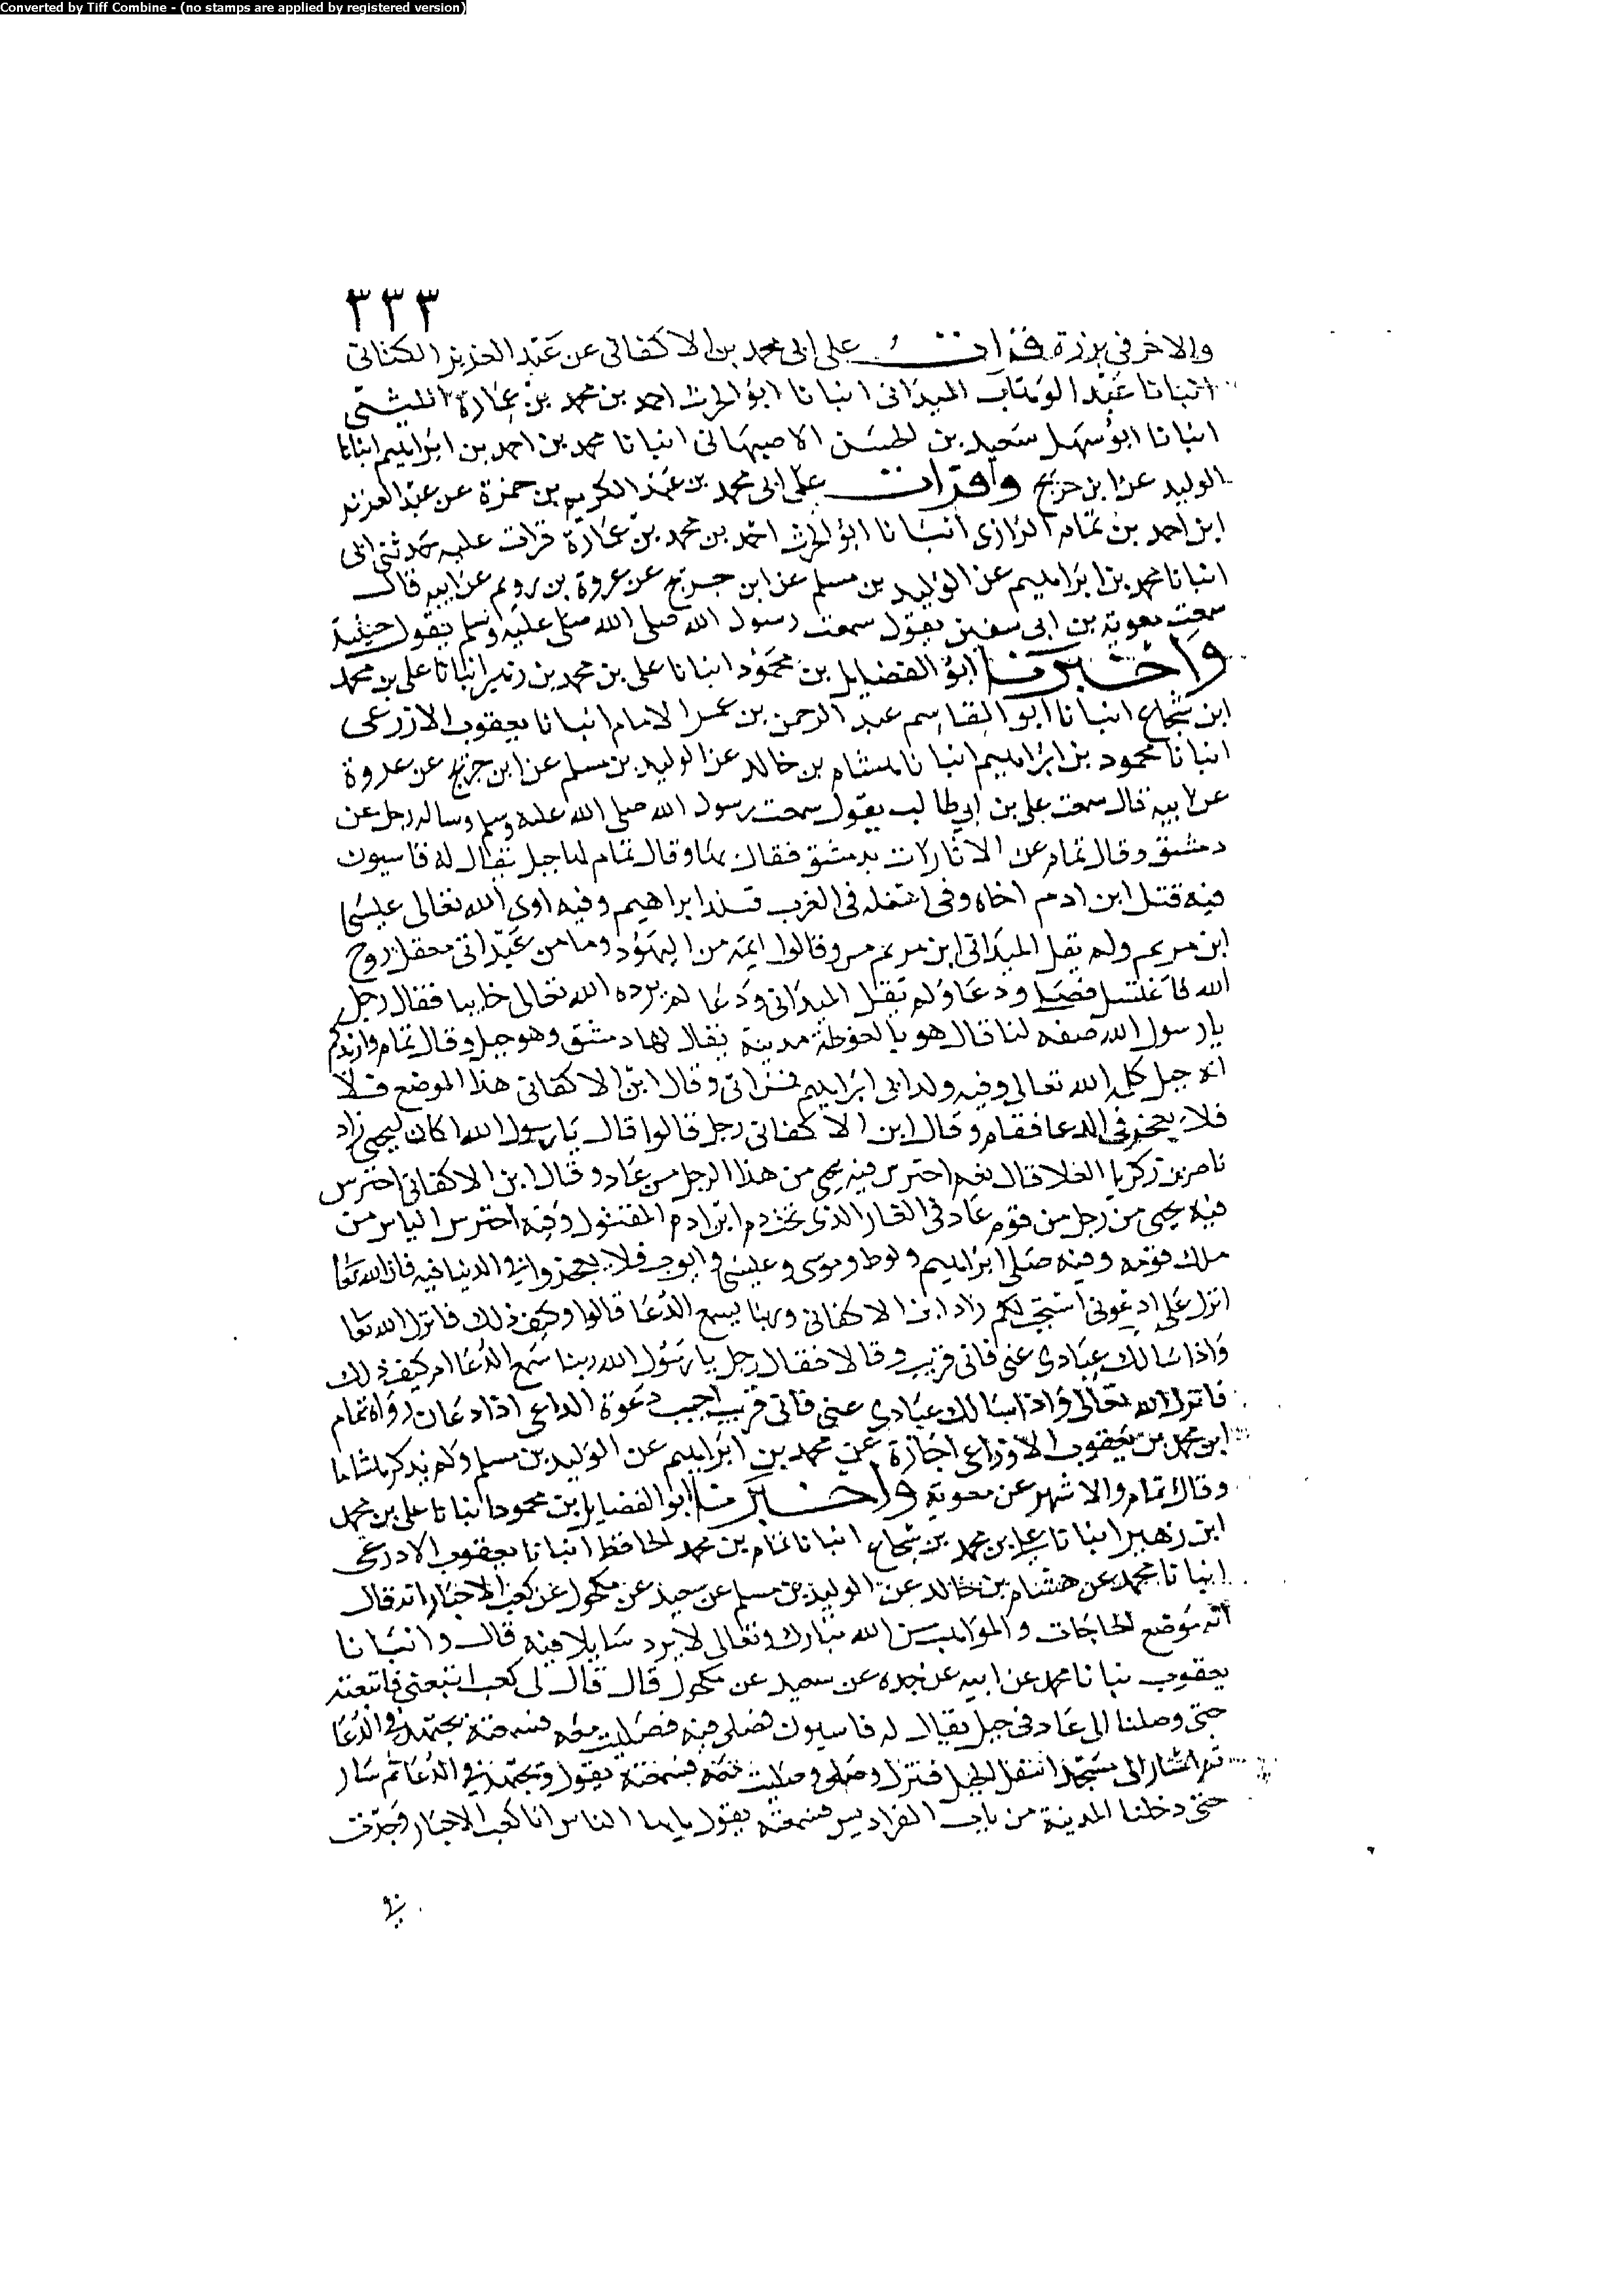 Converted by Tiff Combine - (no stamps are applied by registered version)
٣٣٣
والاخر في برزة قرات على ابي محمد بن الاكفاني عن عبد العزيز الكناني
انبانا عبد الوهاب الميداني انبانا ابو الحرث احمد بن محمد بن عمارة الليثي
انبانا ابو سهل سعيد بن الحسن الاصبهاني انبانا محمد بن احمد بن ابراهيم انبانا
الوليد عن ابن جريج واقرات على ابي محمد بن عبد الكريم بن حمزة عن عبد العزيز
ابن احمد بن تمام الرازي انبانا ابو الحرث احمد بن محمد بن عمارة قرات عليه حدثني ابي
انبانا محمد بن ابراهيم عن الوليد بن مسلم عن ابن جريج عن عروة بن رويم عن ابيه قال
سمعت معوية بن ابي سفين يقول سمعت رسول الله صلى الله عليه وسلم يقول
واخبرنا ابو الفضايل بن محمود انبانا على بن محمد بن زهير انبانا على بن محمد
ابن شجاع انبانا ابو القاسم عبد الرحمن بن عمر الامام انبانا يعقوب الازرعى
انبانا محمود بن ابراهيم انبانا هشام بن خالد عن الوليد بن مسلم عن ابن جريج عن عروة
عن ابيه قال سمعت على بن ابي طالب يقول سمعت رسول الله صلى الله عليه وسلم وساله رجل عن
دمشق وقال تمام عن الاثارات بدمشق فقال بها وقال تمام لها جبل يقال له قاسيون
فيه قتل ابن ادم اخاه وفي اسفله في الغرب ولد ابراهيم وفيه اوى الله تعالى عيسى
ابن مريم ولم يقل الميداني ابن مريم وقالوا امه من اليهود وما من عبد اتى معقل روح
الله فاغتسل فصلى ودعا ولم يقل الميداني ودعا لم يرده الله تعالى خايبا فقال رجل
يا رسول الله صفه لنا قال هو بالغوطة مدينة يقال لها دمشق وهو جبل وقال تمام وازيدكم
انه جبل كلمه الله تعالى وفيه ولد ابي ابراهيم فمن اتى وقال ابن الاكفاني هذا الموضع فلا
فلا يعجز في الدعا فقام وقال ابن الاكفاني رجل قالوا قال يا رسول الله اكان ليحيى زاد
بن زكريا قال نعم احترس فيه يحيى من هذا الرجل من عاد وقال ابن الاكفاني احترس
فيه يحيى من رجل من قوم عاد في الغار الذي تحت دم ابن ادم المقتول وفيه احترس الياس من
ملك قومه وفيه صلى ابراهيم ولوط وموسى وعيسى وايوب فلا يعجزوا في الدنيا فيه فان الله تعا
انزل على ادعوني استجب لكم زاد ابن الاكفاني وربنا يسمع الدعا قالوا وكيف ذلك فانزل الله تعا
واذا سالك عبادي عني فاني قريب وقالا فقال رجل يا رسول الله ربنا سمع الدعا ام كيف ذلك
فانزل الله تعالى واذا سالك عبادي عني فاني قريب اجيب دعوة الداعي اذا دعان رواه تمام
ابن محمد بن يعقوب الاوزاعي اجازة عن محمد بن ابراهيم عن الوليد بن مسلم ولم يذكر هشاما
وقال تمام والاشهر عن معوية واخبرنا ابو الفضايل بن محمود انبانا على بن محمد
ابن زهير انبانا على بن محمد بن شجاع انبانا تمام بن محمد الحافظ انبانا يعقوب الادرعى
انبانا محمد عن هشام بن خالد عن الوليد بن مسلم عن سعيد عن مكحول عن كعب الاحبار انه قال
انه موضع الحاجات والمواهب من الله تبارك وتعالى لا يرد سايلا فيه قال وانبانا
يعقوب نبانا محمد عن ابيه عن جده عن سعيد عن مكحول قال قال لي كعب اتبعني فاتبعته
حتى وصلنا الى غار في جبل يقال له قاسيون فصلى فيه فصليت معه فسمعته يجتهد في الدعا
ثم اشار الى مسجد اسفل الجبل فنزل وصلى وصليت معه فسمعته يقول ويجتهد في الدعا ثم سار
حتى دخلنا المدينة من باب الفراديس فسمعته يقول يا ايها الناس انا كعب الاحبار وجدت
في